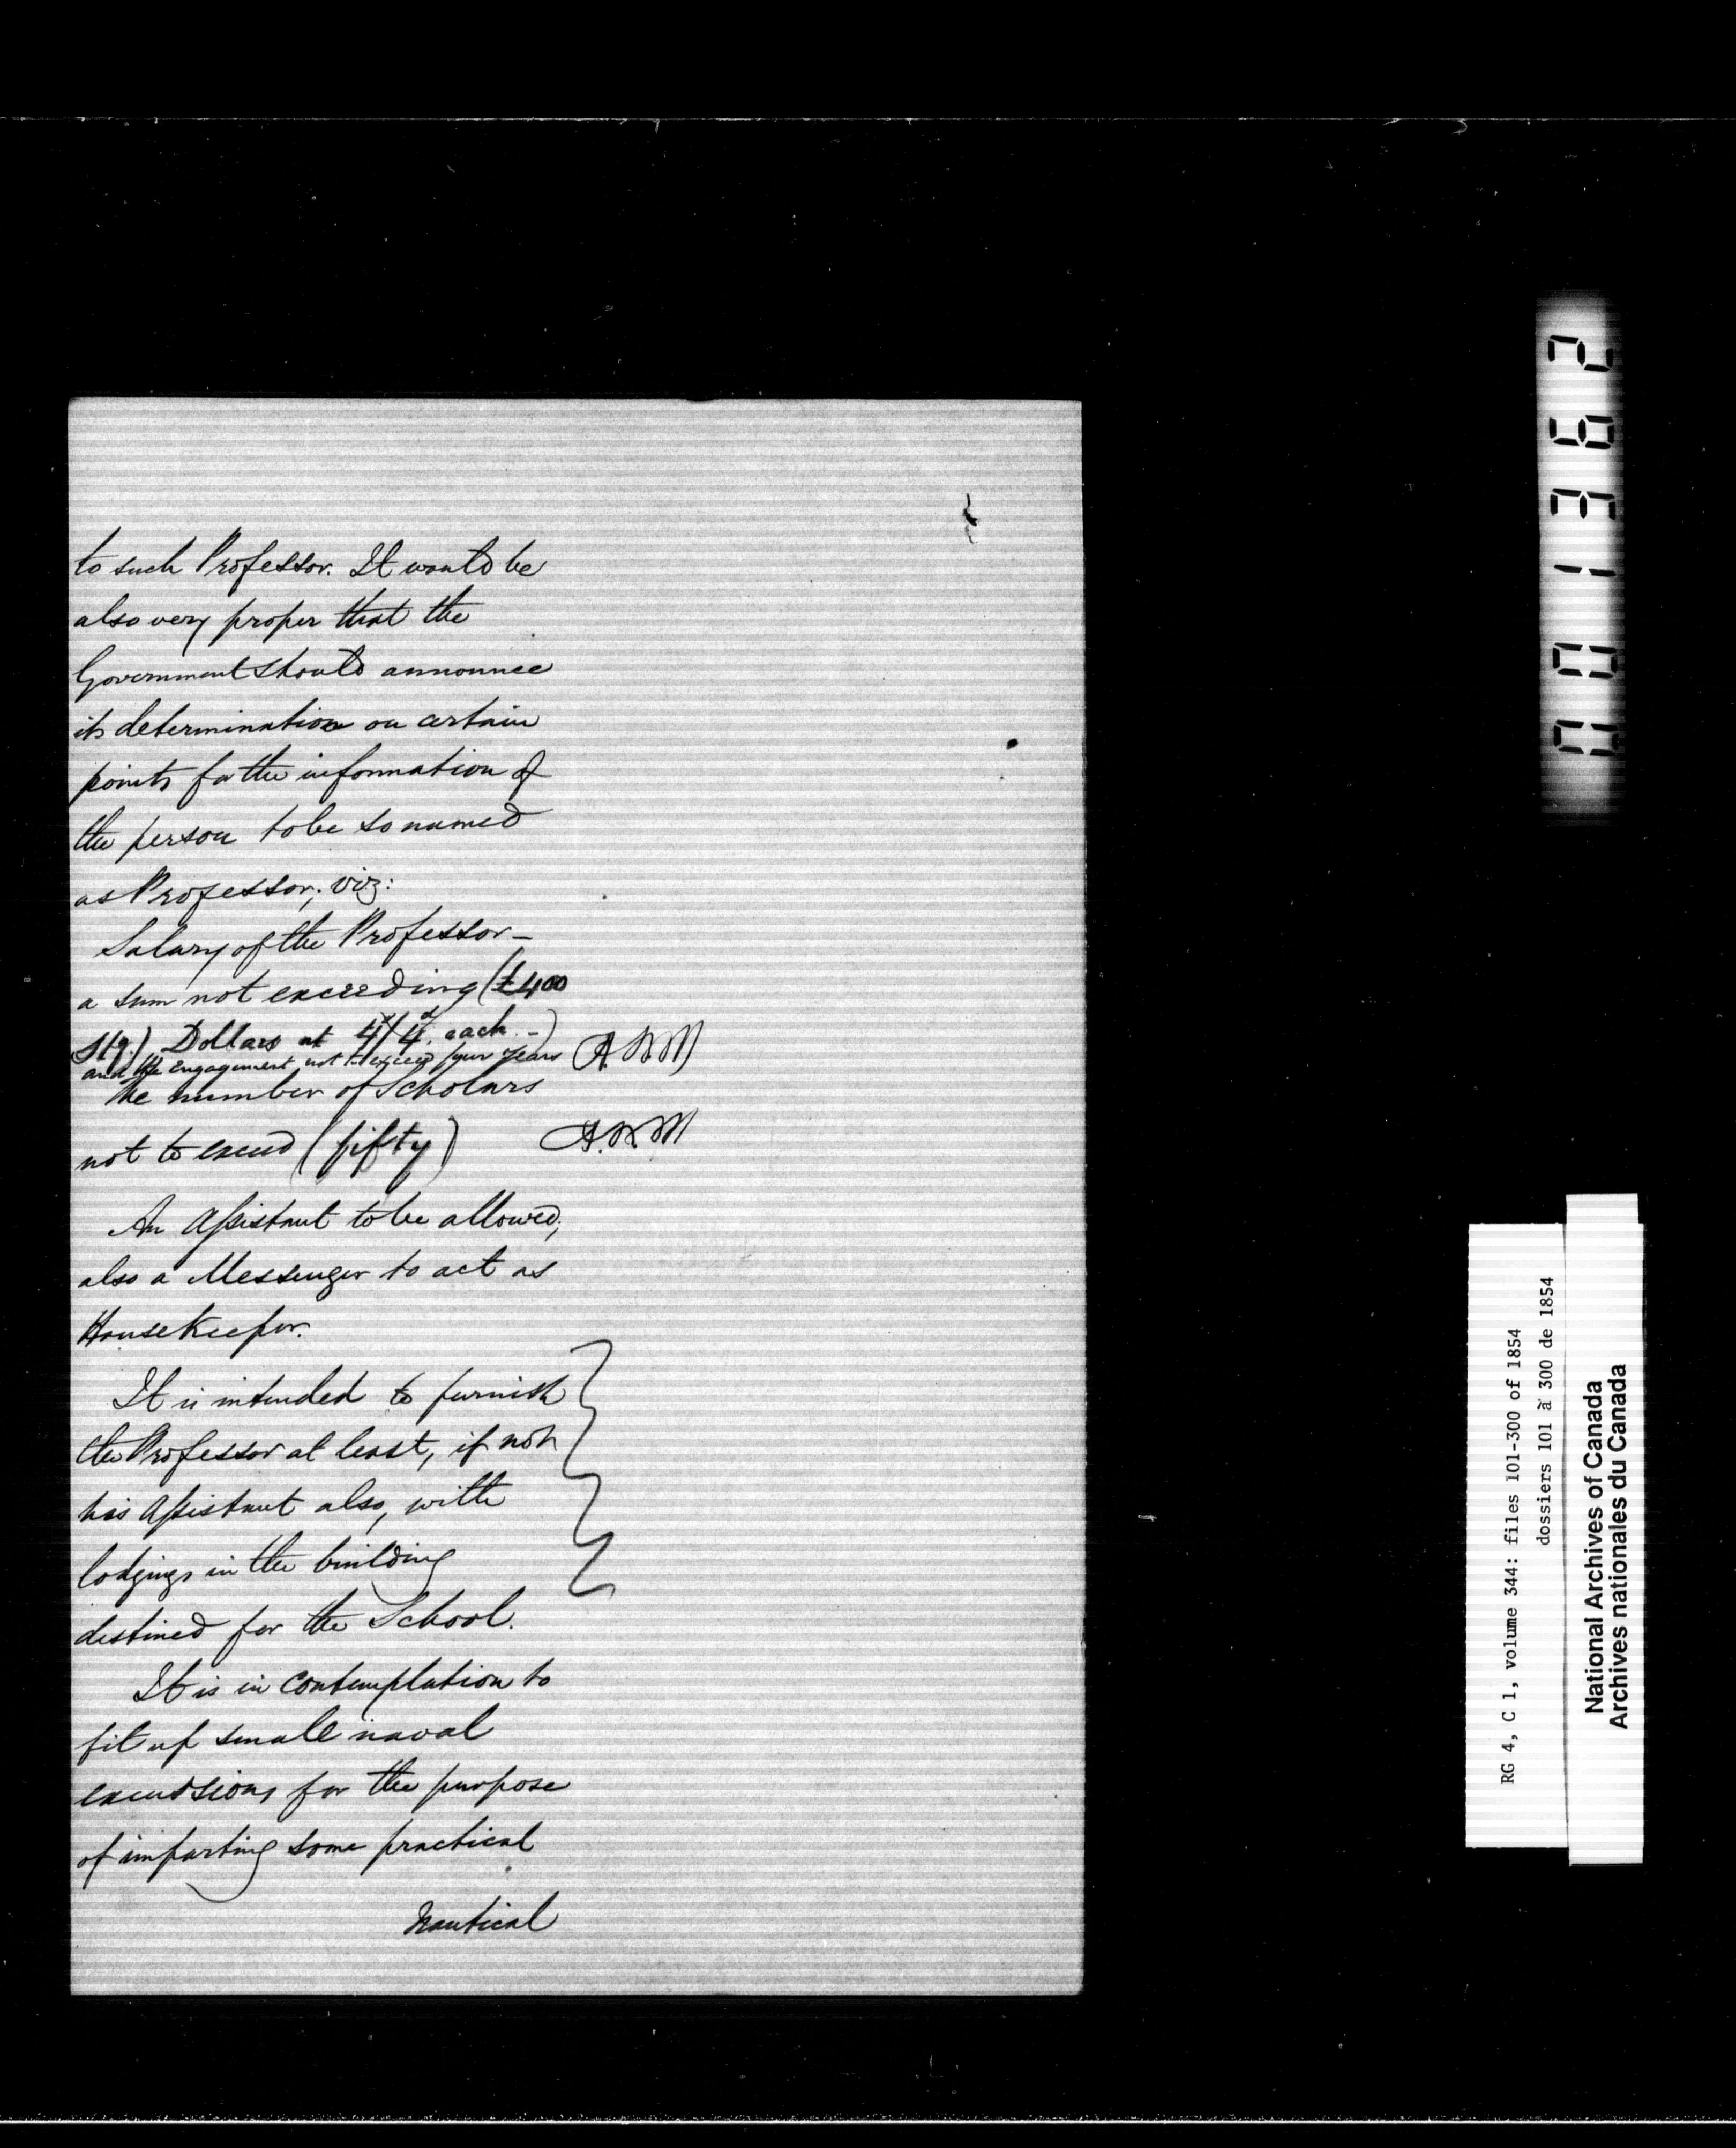 to such Professor. It would be
also very proper that the
Government should announce
its determination on certain
points for the information of
the person to be so named
as Professor; viz:
Salary of the Professor –
a sum not exceeding (£400
Stg.) Dollars at 4s/4d. each –)
and the engagement not to exceed four years
The number of Scholars
not to exceed (fifty)
An Assistant to be allowed;
also a Messenger to act as
Housekeeper.
It is intended to furnish
the Professor at least, if not
his Assistant also, with
lodgings in the building
destined for the School.
It is in contemplation to
fit up small naval
excursions for the purpose
of imparting some practical
Nautical
001362
RG 4, C 1, volume 344: files 101-300 of 1854
dossiers 101 à 300 de 1854
National Archives of Canada
Archives nationales du Canada